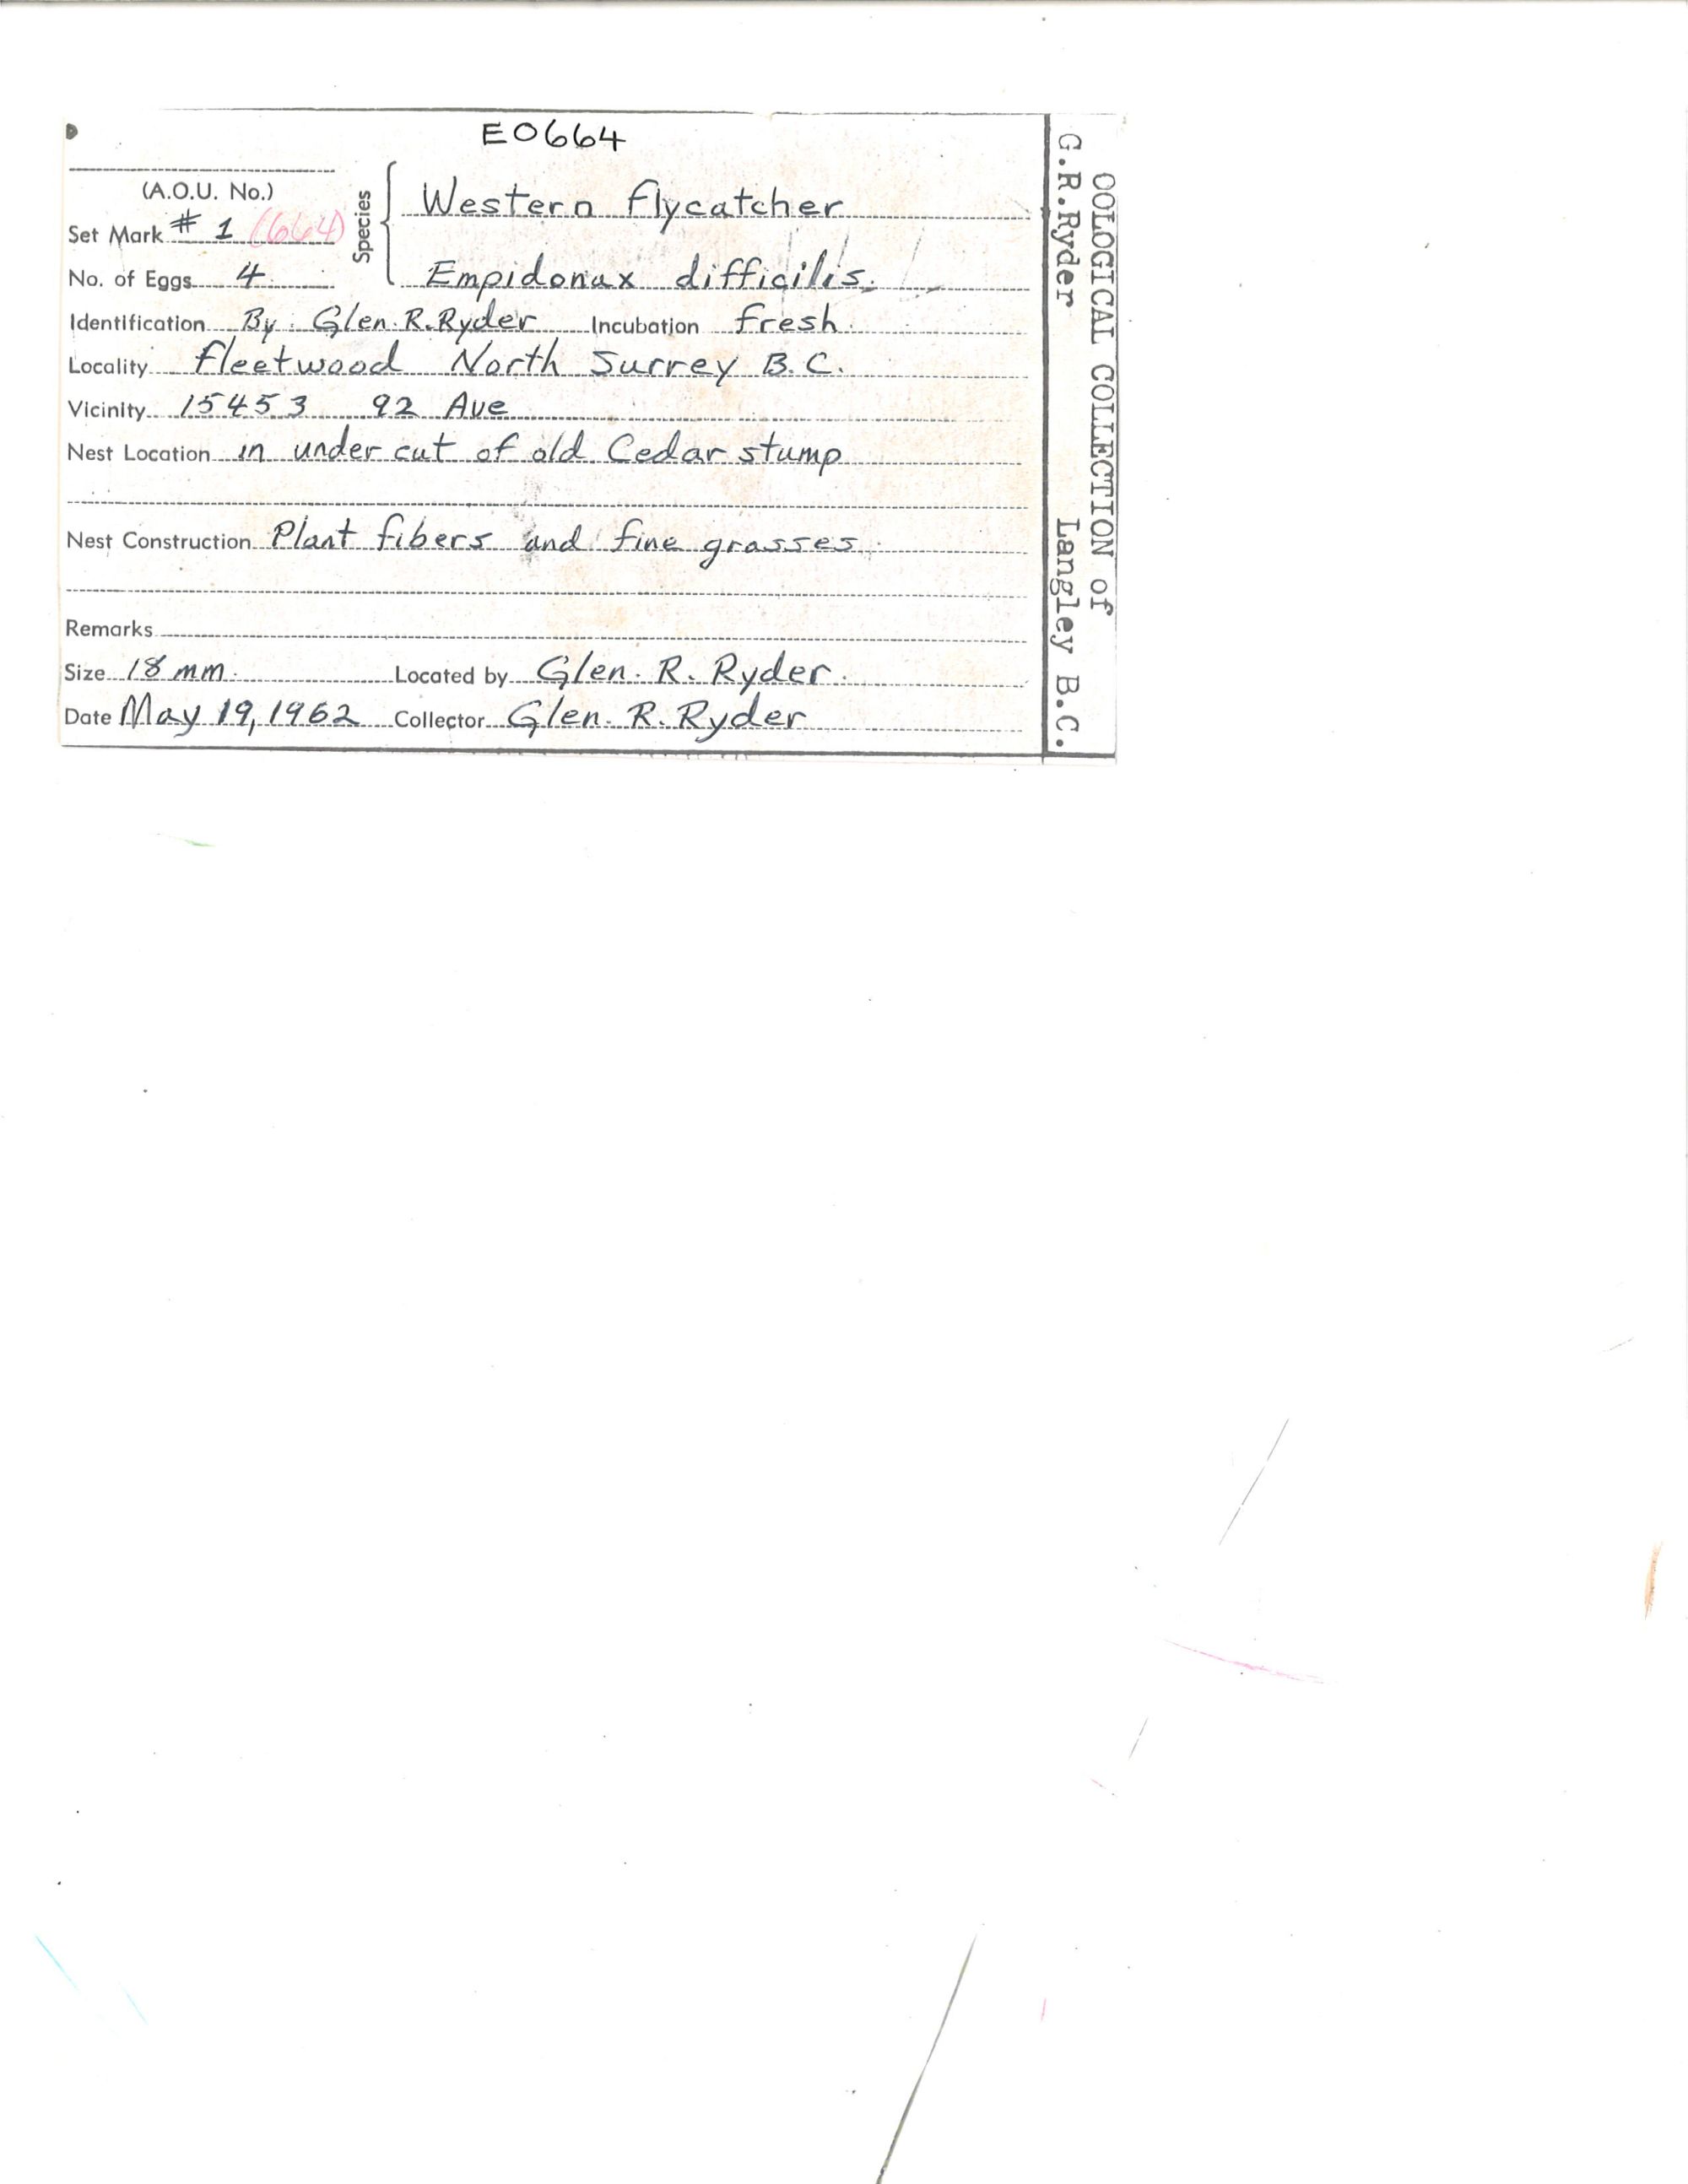 E0664
(A.O.U. No.)
Set Mark # 1 (664)
No. of Eggs 4
Species
Western flycatcher
Empidonax difficilis.
Identification By: Glen. R. Ryder Incubation fresh.
Locality fleetwood North Surrey B.C.
Vicinity 15453 92 Ave
Nest Location in under cut of old Cedar stump
Nest Construction Plant fibers and fine grasses.
Remarks
Size 18 mm. Located by Glen. R. Ryder.
Date May 19, 1962 Collector Glen. R. Ryder
OOLOGICAL COLLECTION of
G.R.Ryder Langley B.C.